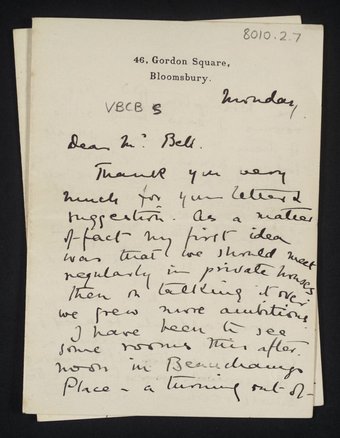 8010.2.7
46, Gordon Square,
Bloomsbury.
VBCB 5
Monday
Dear Mr. Bell.
Thank you very
much for your letter &
suggestion. As a matter
of fact my first idea
was that we should meet
regularly in private houses
then on talking it over
we grew more ambitious.
I have been to see
some rooms this after-
noon in Beauchamp
Place - a turning out of-